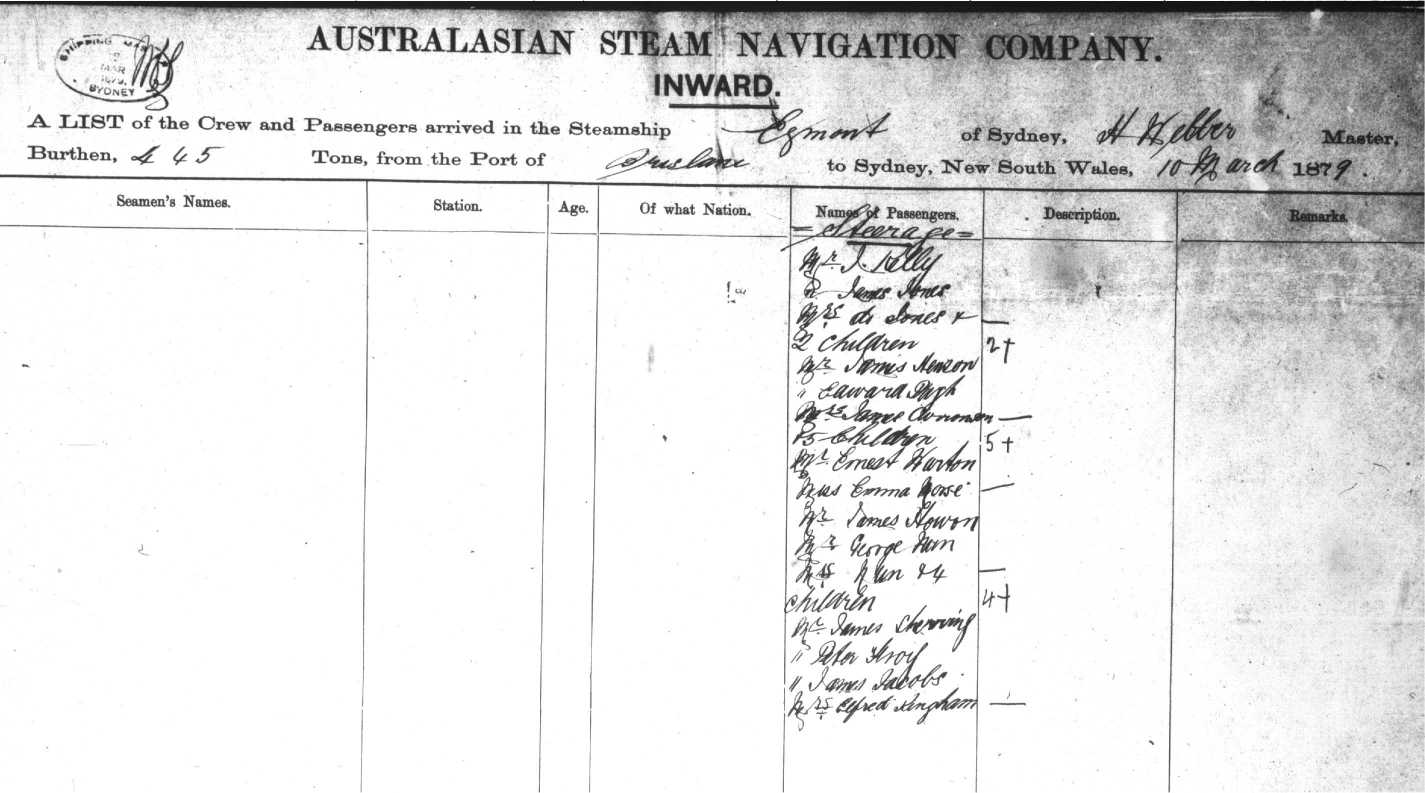 SHIPPING MAS
MAR
1879
SYDNEY
AUSTRALASIAN STEAM NAVIGATION COMPANY.
INWARD.
A LIST of the Crew and Passengers arrived in the Steamship Egmont of Sydney, H Webber Master,
Burthen, 445 Tons, from the Port of Brisbane to Sydney, New South Wales, 10 March 1879.
Seamen's Names. Station. Age. Of what Nation. Names of Passengers. Description. Remarks.
= Steerage =
Mr J. Kelly
James Jones
Mrs do Jones & —
2 Children 2+
Mr James Henson
" Edward Pugh
Mrs James —
5 Children 5+
Mr Ernest Warton
Miss Emma —
Mr James Howon
Mr George Nun
Mrs Nun & 4 —
children 4+
Mr James
" Peter
" James Jacobs
Mrs Alfred Kingham —